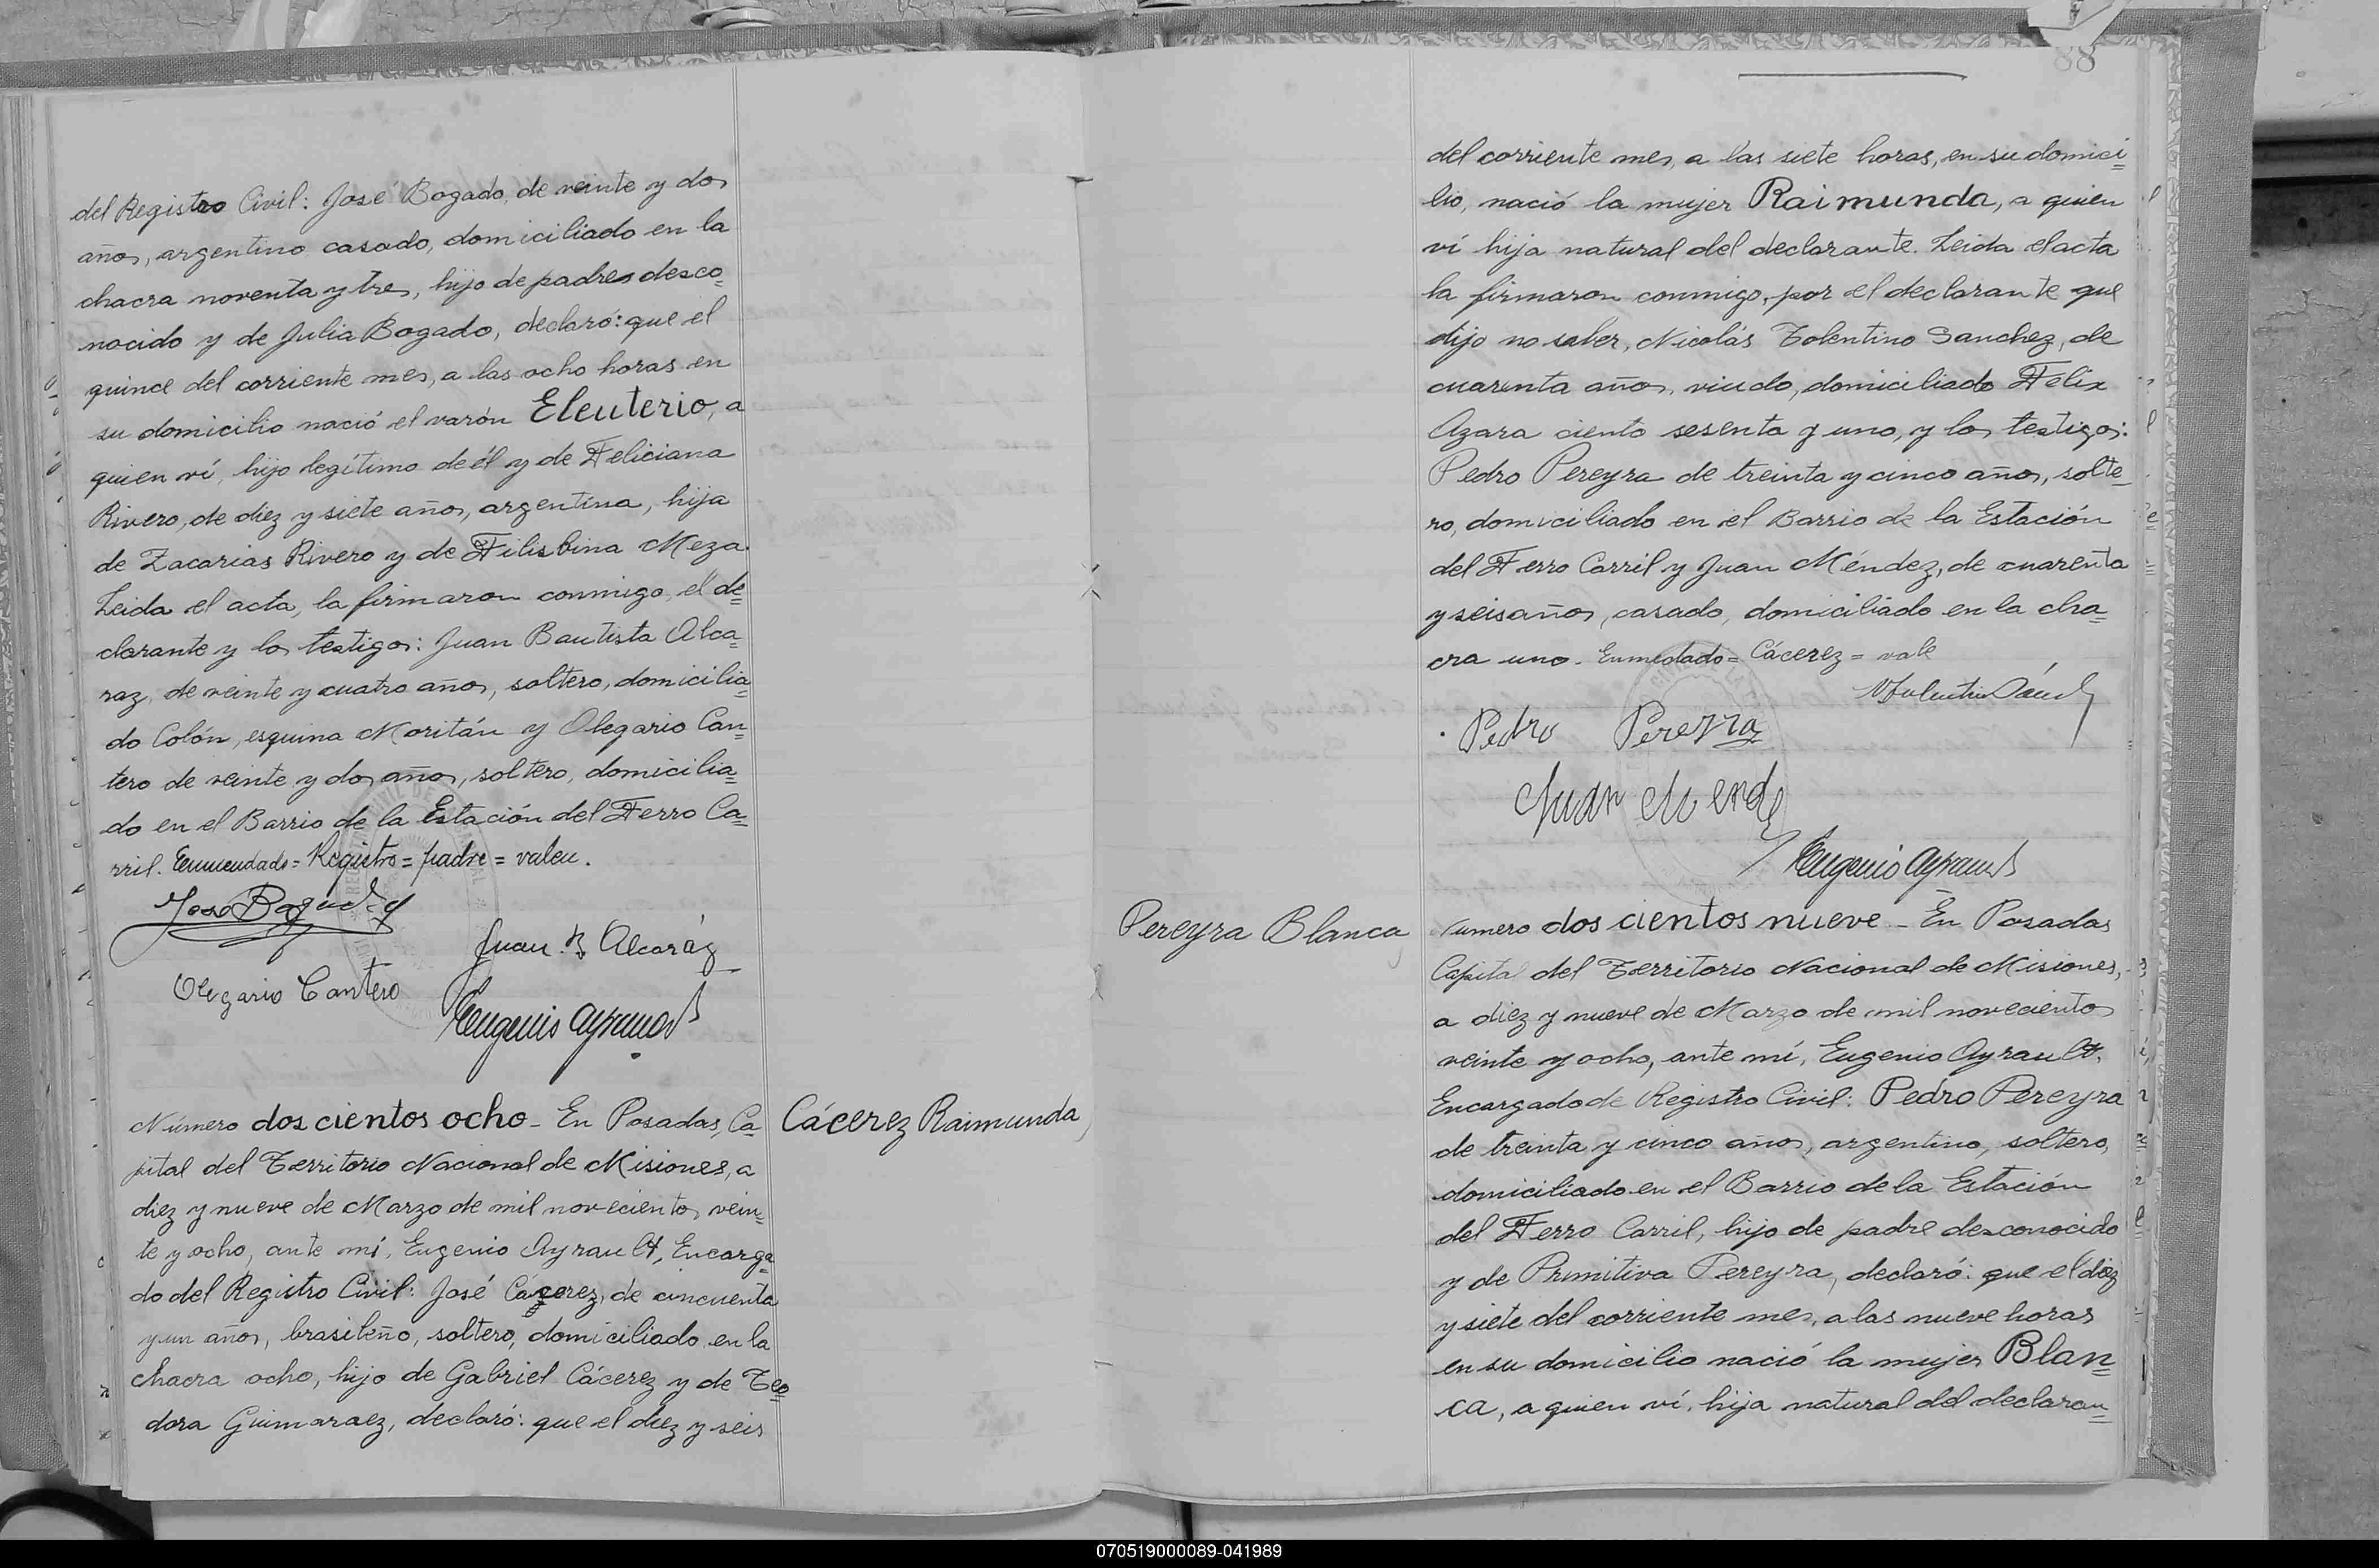 del Registro Civil: José Bogado, de veinte y dos
años, argentino casado, domiciliado en la
chacra noventa y tres, hijo de padres desco=
nocido y de Julia Bogado, declaró: que el
quince del corriente mes, a las ocho horas en
su domicilio nació el varón Eleuterio, a
quien ví, hijo legítimo de él y de Feliciana
Rivero, de diez y siete años, argentina, hija
de Zacarias Rivero y de Filisbina Meza.
Leida el acta, la firmaron conmigo, el de=
clarante y los testigos: Juan Bautista Alca=
raz, de veinte y cuatro años, soltero, domicilia=
do Colón, esquina Moritán y Olegario Can=
tero de veinte y dos años, soltero, domicilia=
do en el Barrio de la Estación del Ferro Ca=
rril. Enmendado = Registro = padre = valen.
José Bogado
Juan B Alcaráz
Olegario Cantero
Eugenio Ayrault
Número dos cientos ocho - En Posadas, Ca=
pital del Territorio Nacional de Misiones, a
diez y nueve de Marzo de mil novecientos vein=
te y ocho, ante mí, Eugenio Ayrault, Encarga=
do del Registro Civil: José Cácerez, de cincuenta
y un años, brasileño, soltero, domiciliado en la
chacra ocho, hijo de Gabriel Cácerez y de Teo=
dora Guimaraez, declaró: que el diez y seis
Cácerez Raimunda
88
del corriente mes, a las siete horas, en su domici=
lio, nació la mujer Raimunda, a quien
ví hija natural del declarante. Leida el acta
la firmaron conmigo, por el declarante que
dijo no saber, Nicolás Tolentino Sanchez, de
cuarenta años, viudo, domiciliado Felix
Azara ciento sesenta y uno, y los testigos:
Pedro Pereyra de treinta y cinco años, solte=
ro, domiciliado en el Barrio de la Estación
del Ferro Carril y Juan Méndez, de cuarenta
y seis años, casado, domiciliado en la cha=
cra uno. Enmedado = Cácerez = vale
Pedro Pereyra
Juan Mendez
Eugenio Ayrault
Pereyra Blanca
Número dos cientos nueve - En Posadas
Capital del Territorio Nacional de Misiones,
a diez y nueve de Marzo de mil novecientos
veinte y ocho, ante mí, Eugenio Ayrault,
Encargado de Registro Civil: Pedro Pereyra
de treinta y cinco años, argentino, soltero,
domiciliado en el Barrio de la Estación
del Ferro Carril, hijo de padre desconocido
y de Primitiva Pereyra, declaró: que el diez
y siete del corriente mes, a las nueve horas
en su domicilio nació la mujer Blan=
ca, a quien ví, hija natural del declaran=
070519000089-041989